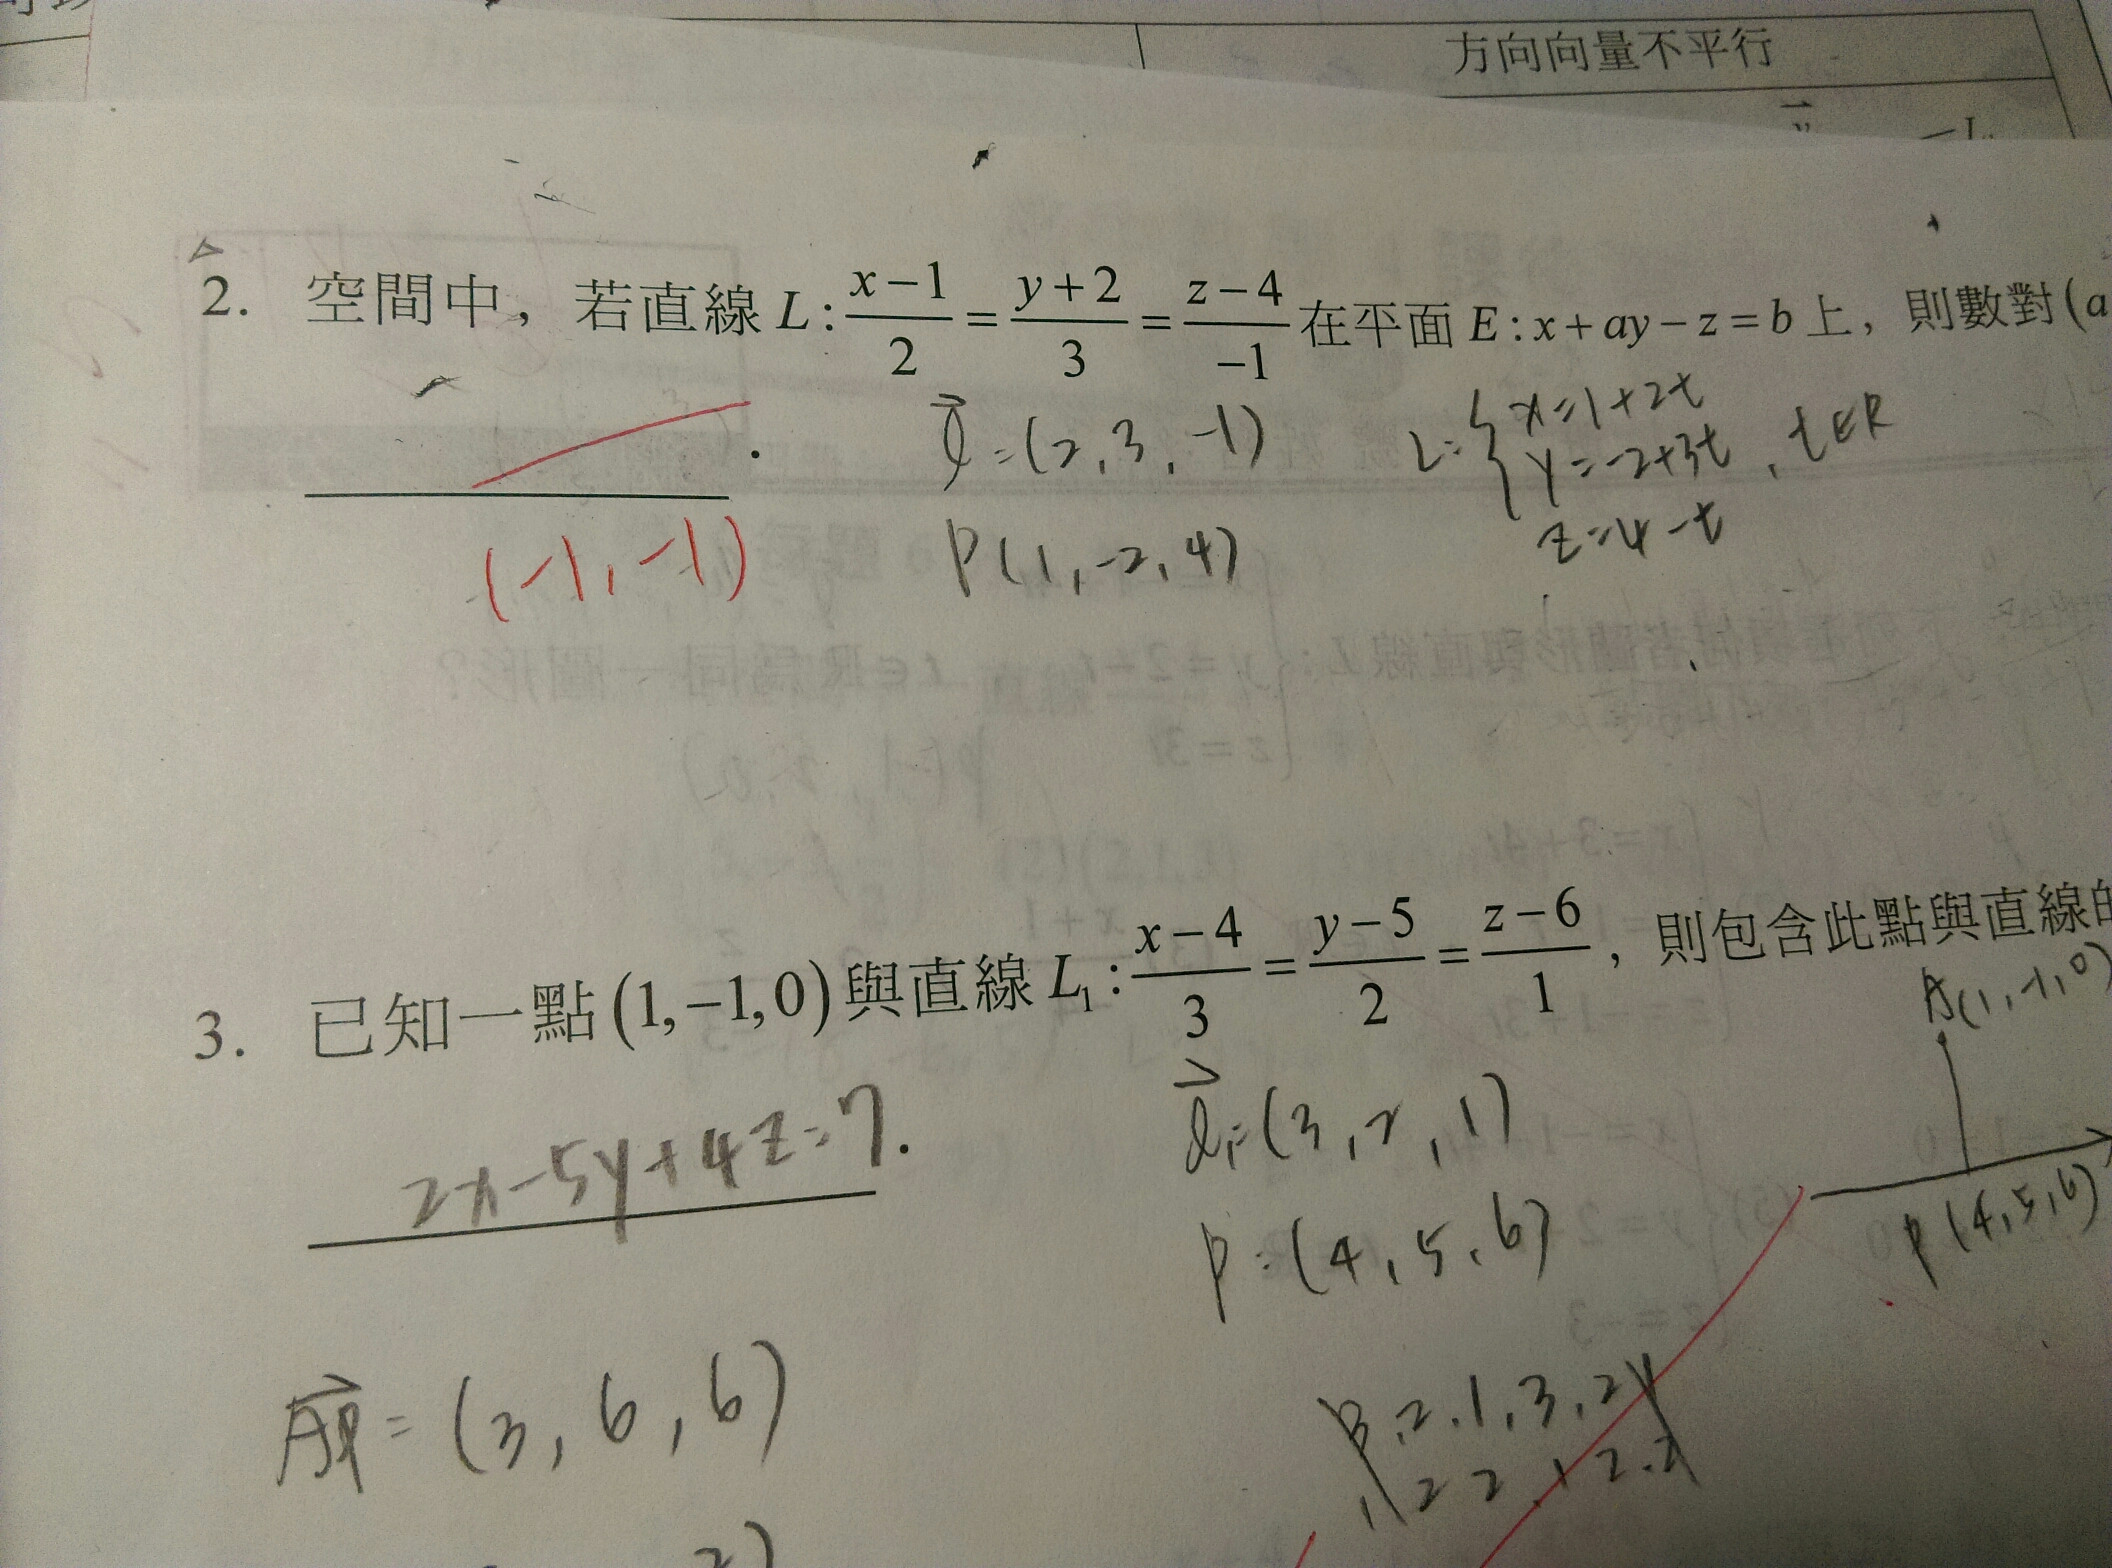 方向向量不平行
2. 空間中，若直線 L: (x-1)/2 = (y+2)/3 = (z-4)/-1 在平面 E: x+ay-z=b 上，則數對(a
L: { x=1+2t
l=(2,3,-1)
y=-2+3t , t∈R
(-1,-1)
P(1,-2,4)
z=4-t
3. 已知一點(1,-1,0)與直線 L₁: (x-4)/3 = (y-5)/2 = (z-6)/1，則包含此點與直線的
A(1,-1,0)
2x-5y+4z=7.
l₁=(3,2,1)
P=(4,5,6)
P(4,5,6)
AP=(3,6,6)
3,2,1,3,2,1
1,2,2,1,2,2